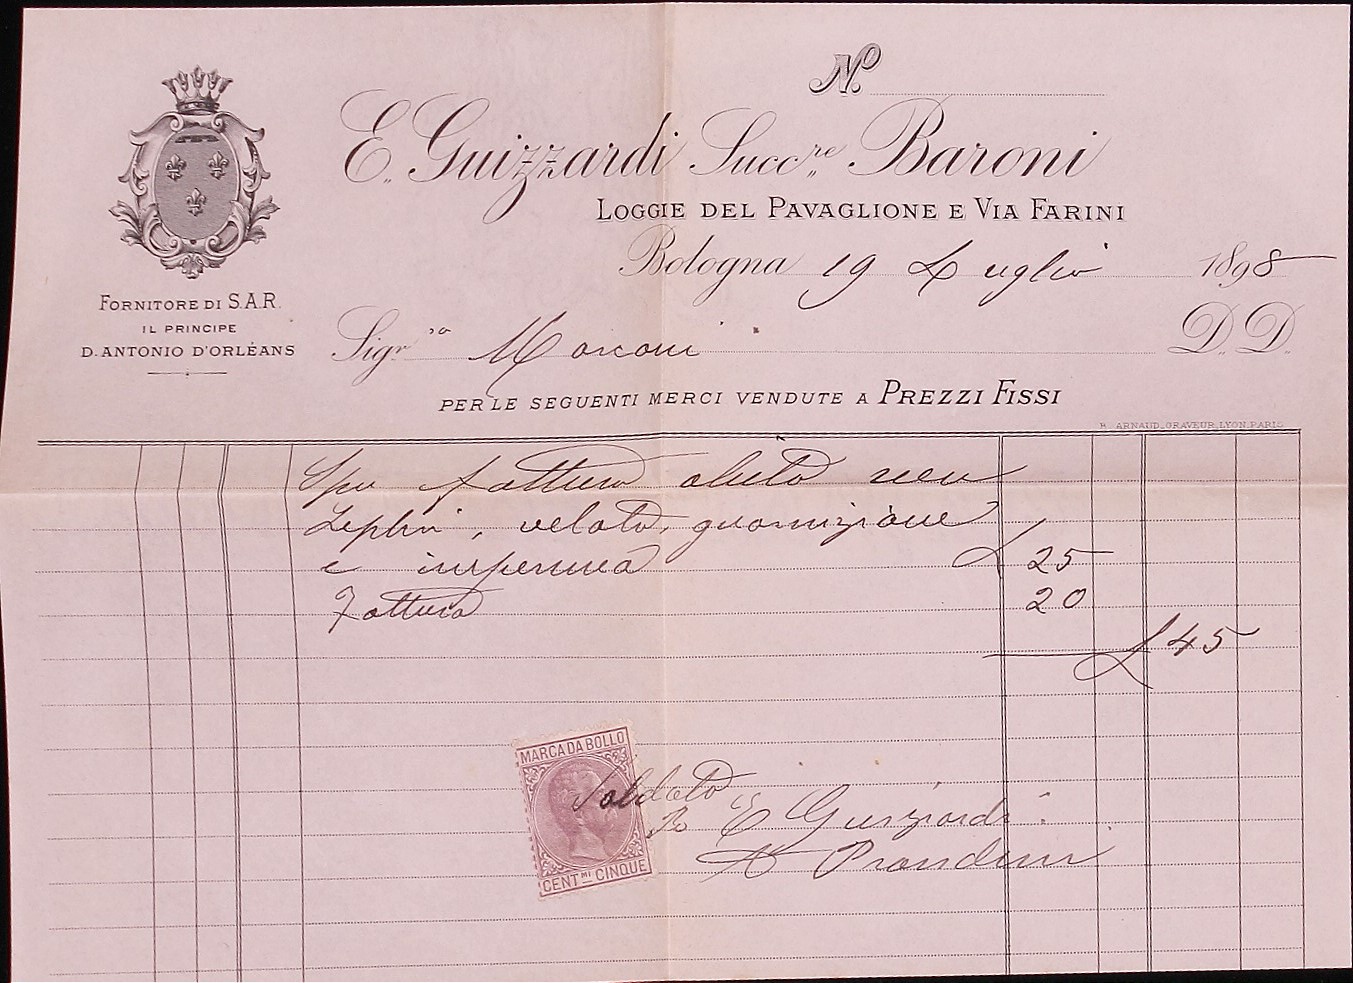 N.
E. Guizzardi Succ.re Baroni
LOGGIE DEL PAVAGLIONE E VIA FARINI
Bologna 19 Luglio 1898
FORNITORE DI S.A.R.
IL PRINCIPE
D. ANTONIO D'ORLÉANS
Sigr.ra Marconi D. D.
PER LE SEGUENTI MERCI VENDUTE A PREZZI FISSI
B. ARNAUD_GRAVEUR_LYON_PARIS
fattura abito
velato, guarnizione
e L 25
Fattura 20
L 45
MARCA DA BOLLO
Saldato
E Guizzardi
CENT.MI CINQUE